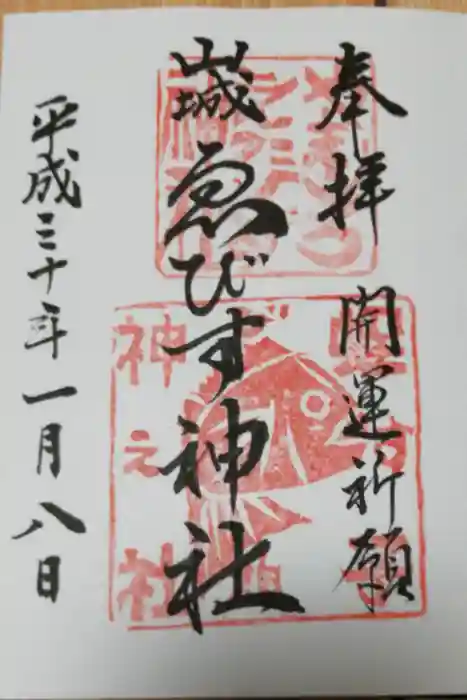 奉拝
開運祈願
山城ゑびす神社
平成三十年一月八日